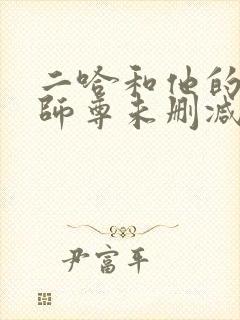 二哈和他的
師尊未删减
尹富平